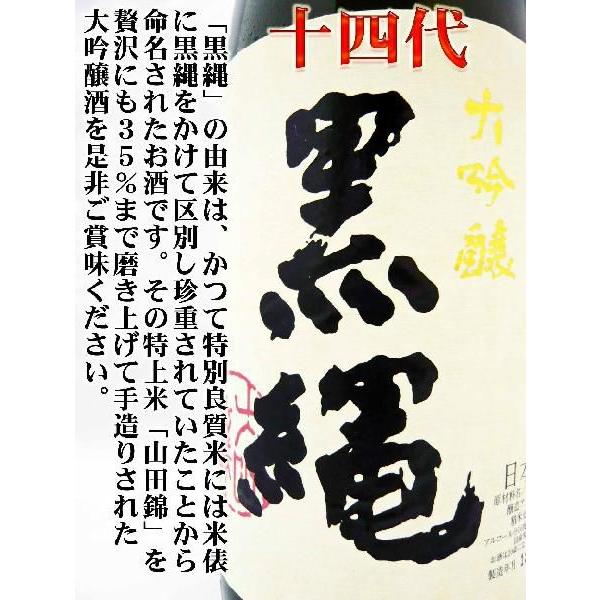 十四代
大吟醸
黒縄
「黒縄」の由来は、かつて特別良質米には米俵
に黒縄をかけて区別し珍重されていたことから
命名されたお酒です。その特上米「山田錦」を
贅沢にも35%まで磨き上げて手造りされた
大吟醸酒を是非ご賞味ください。
日本
原材料名
アルコール
製造年月